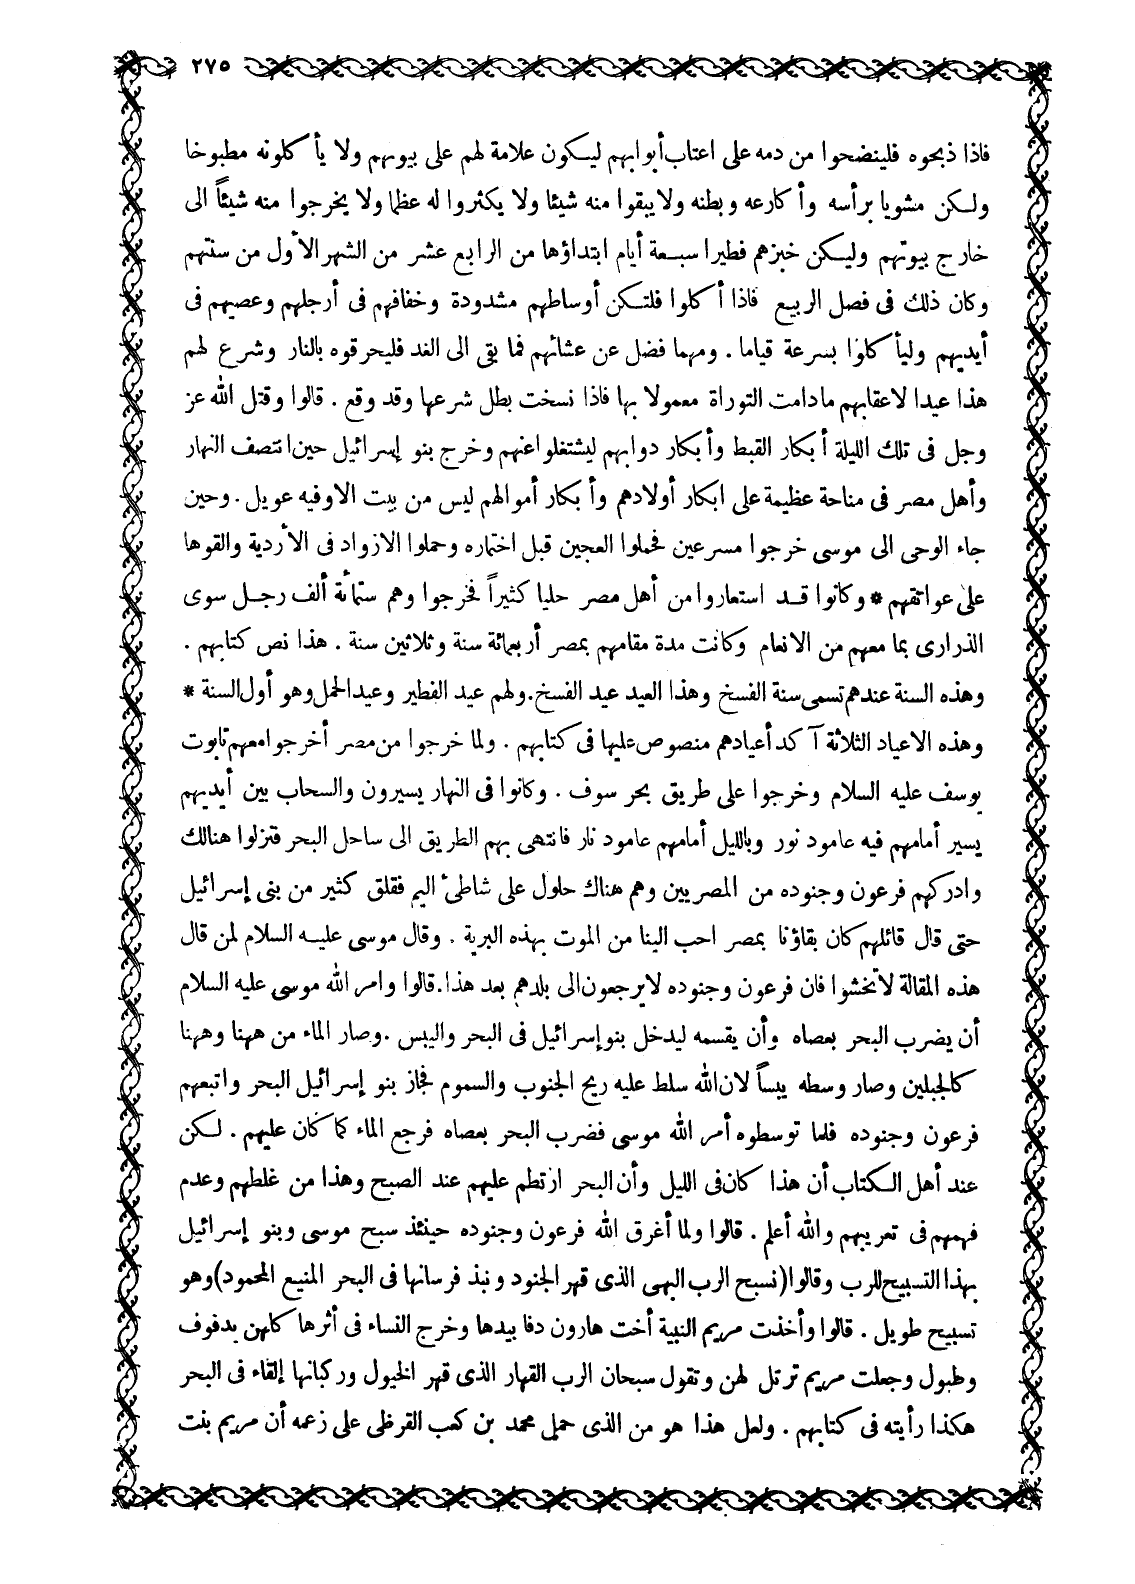 ٢٧٥
فاذا ذبحوه فلينضحوا من دمه على اعتاب أبوابهم ليكون علامة لهم على بيوتهم ولا يأكلونه مطبوخا
ولكن مشويا برأسه وأكارعه وبطنه ولا يبقوا منه شيئا ولا يكثروا له عظما ولا يخرجوا منه شيئاً الى
خارج بيوتهم وليكن خبزهم فطيرا سبعة أيام ابتداؤها من الرابع عشر من الشهر الأول من سنتهم
وكان ذلك فى فصل الربيع فاذا أكلوا فلتكن أوساطهم مشدودة وخفافهم فى أرجلهم وعصيهم فى
أيديهم وليأكلوا بسرعة قياما . ومهما فضل عن عشائهم فما بقى الى الغد فليحرقوه بالنار وشرع لهم
هذا عيدا لاعقابهم مادامت التوراة معمولا بها فاذا نسخت بطل شرعها وقد وقع . قالوا وقتل الله عز
وجل فى تلك الليلة أبكار القبط وأبكار دوابهم ليشتغلوا عنهم وخرج بنو إسرائيل حين انتصف النهار
وأهل مصر فى مناحة عظيمة على ابكار أولادهم وأبكار أموالهم ليس من بيت الا وفيه عويل . وحين
جاء الوحى الى موسى خرجوا مسرعين فحملوا العجين قبل اختماره وحملوا الازواد فى الأردية والقوها
على عواتقهم * وكانوا قد استعاروا من أهل مصر حليا كثيراً فخرجوا وهم ستمائة ألف رجل سوى
الذرارى بما معهم من الانعام وكانت مدة مقامهم بمصر أربعمائة سنة وثلاثين سنة . هذا نص كتابهم .
وهذه السنة عندهم تسمى سنة الفسخ وهذا العيد عيد الفسخ . ولهم عيد الفطير وعيد الحمل وهو أول السنة *
وهذه الاعياد الثلاثة آكد أعيادهم منصوص عليها فى كتابهم . ولما خرجوا من مصر أخرجوا معهم تابوت
يوسف عليه السلام وخرجوا على طريق بحر سوف . وكانوا فى النهار يسيرون والسحاب بين أيديهم
يسير أمامهم فيه عامود نور وبالليل أمامهم عامود نار فانتهى بهم الطريق الى ساحل البحر فنزلوا هنالك
وادركهم فرعون وجنوده من المصريين وهم هناك حلول على شاطئ اليم فقلق كثير من بنى إسرائيل
حتى قال قائلهم كان بقاؤنا بمصر احب الينا من الموت بهذه البرية . وقال موسى عليه السلام لمن قال
هذه المقالة لا تخشوا فان فرعون وجنوده لا يرجعون الى بلدهم بعد هذا . قالوا وامر الله موسى عليه السلام
أن يضرب البحر بعصاه وأن يقسمه ليدخل بنو إسرائيل فى البحر واليبس . وصار الماء من ههنا وههنا
كالجبلين وصار وسطه يبساً لان الله سلط عليه ريح الجنوب والسموم فجاز بنو إسرائيل البحر واتبعهم
فرعون وجنوده فلما توسطوه أمر الله موسى فضرب البحر بعصاه فرجع الماء كما كان عليهم . لكن
عند أهل الكتاب أن هذا كان فى الليل وأن البحر ارتطم عليهم عند الصبح وهذا من غلطهم وعدم
فهمهم فى تعريبهم والله أعلم . قالوا ولما أغرق الله فرعون وجنوده حينئذ سبح موسى وبنو إسرائيل
بهذا التسبيح للرب وقالوا (نسبح الرب البهى الذى قهر الجنود ونبذ فرسانها فى البحر المنيع المحمود) وهو
تسبيح طويل . قالوا وأخذت مريم النبية أخت هارون دفا بيدها وخرج النساء فى أثرها كلهن بدفوف
وطبول وجعلت مريم ترتل لهن وتقول سبحان الرب القهار الذى قهر الخيول وركبانها إلقاء فى البحر
هكذا رأيته فى كتابهم . ولعل هذا هو من الذى حمل محمد بن كعب القرظى على زعمه أن مريم بنت